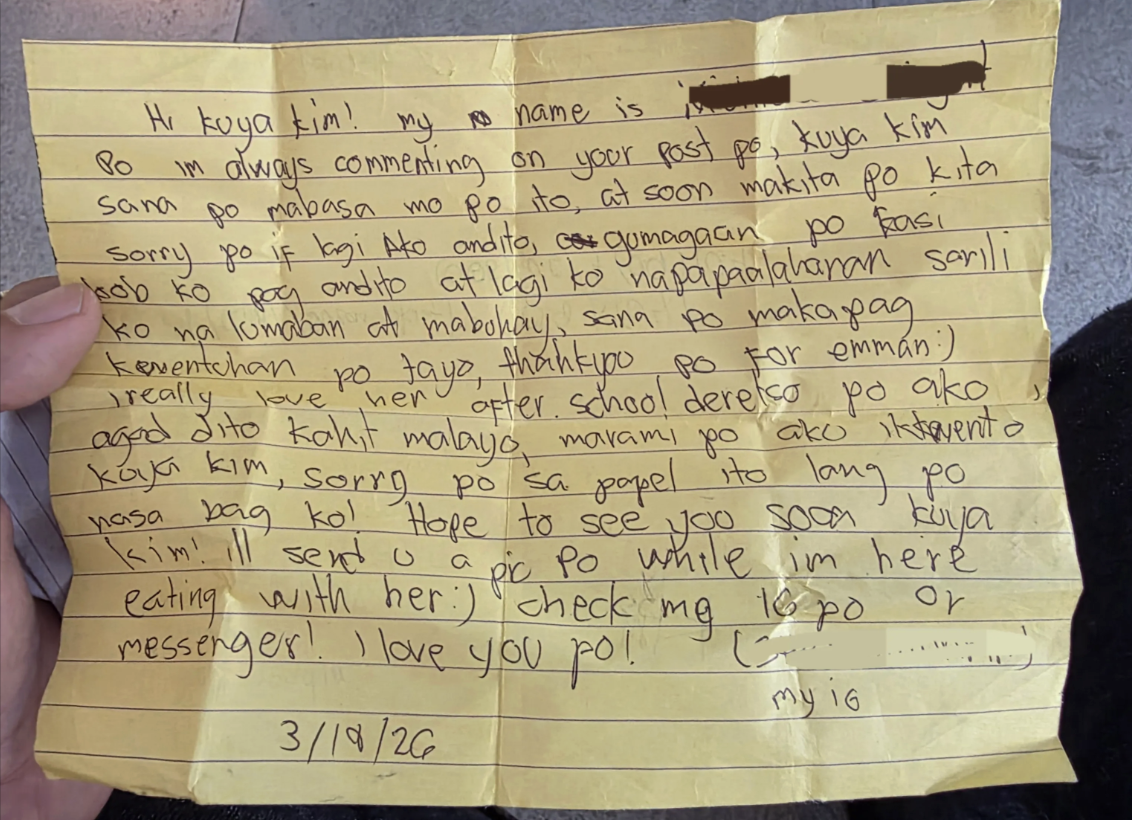 Hi kuya kim! my name is
Po im always commenting on your post po, kuya kim
sana po mabasa mo po ito, at soon makita po kita
sorry po if lagi Ako andito, gumagaan po kasi
loob ko pag andito at lagi ko napapaalahanan sarili
ko na lumaban at mabuhay, sana po makapag
kewentuhan po tayo, thankyou po for emman:)
i really love her after school deretso po ako
agad dito kahit malayo, marami po ako ikkwento
kuya kim, sorry po sa papel ito lang po
nasa bag ko! Hope to see you soon kuya
kim! ill send u a pic po while im here
eating with her:) check my IG po or
messenger! I love you po!
my IG
3/18/26